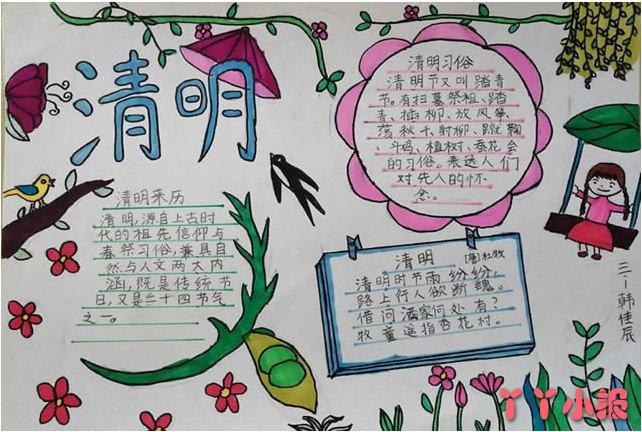 清明
清明来历
清明,源自上古时
代的祖先信仰与
春祭习俗,兼具自
然与人文两大内
涵,既是传统节
日,又是二十四节气
之一。
清明习俗
清明节又叫踏青
节。有扫墓祭祖、踏
青、插柳、放风筝、
荡秋千、射柳、蹴鞠
、斗鸡、植树、蚕花会
的习俗。表达人们
对先人的怀
念。
清明
[唐]杜牧
清明时节雨纷纷,
路上行人欲断魂。
借问酒家何处有?
牧童遥指杏花村。
三一韩佳辰
丫丫小报